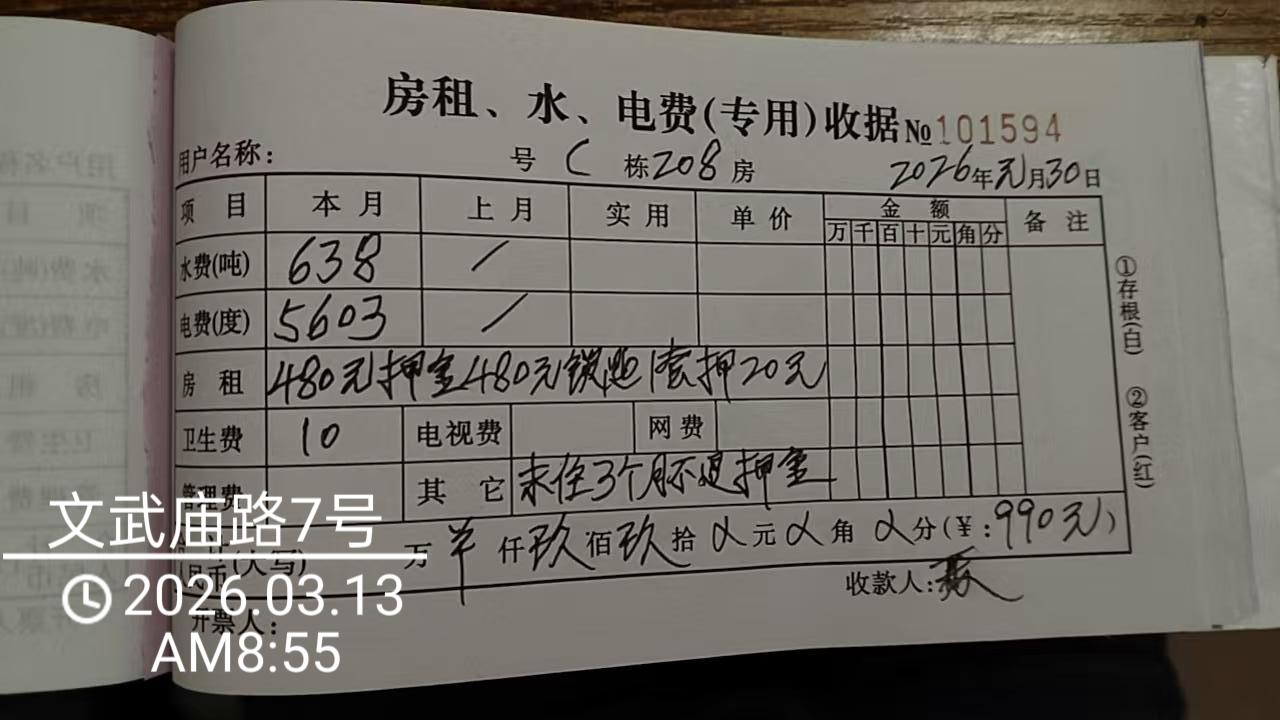 房租、水、电费(专用)收据 №101594
用户名称: 号 C 栋 208 房 2026年元月30日
项目 本月 上月 实用 单价 金额 备注
万 千 百 十 元 角 分
水费(吨) 638 /
电费(度) 5603 /
房租 480元押金480元锁匙1套押20元
卫生费 10 电视费 网费
管理费 其它 未住3个月不退押金
人民币(大写) 万 仟玖佰玖拾 元 角 分(¥:990元)
开票人: 收款人:
①存根(白) ②客户(红)
文武庙路7号
2026.03.13
AM8:55